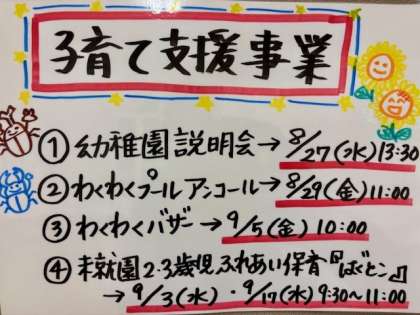 子育て支援事業
①幼稚園説明会→8/27(水)13:30
②わくわくプールアンコール→8/29(金)11:00
③わくわくバザー→9/5(金)10:00
④未就園2・3歳児ふれあい保育『ばどとン』
→9/3(水)・9/17(水)9:30~11:00